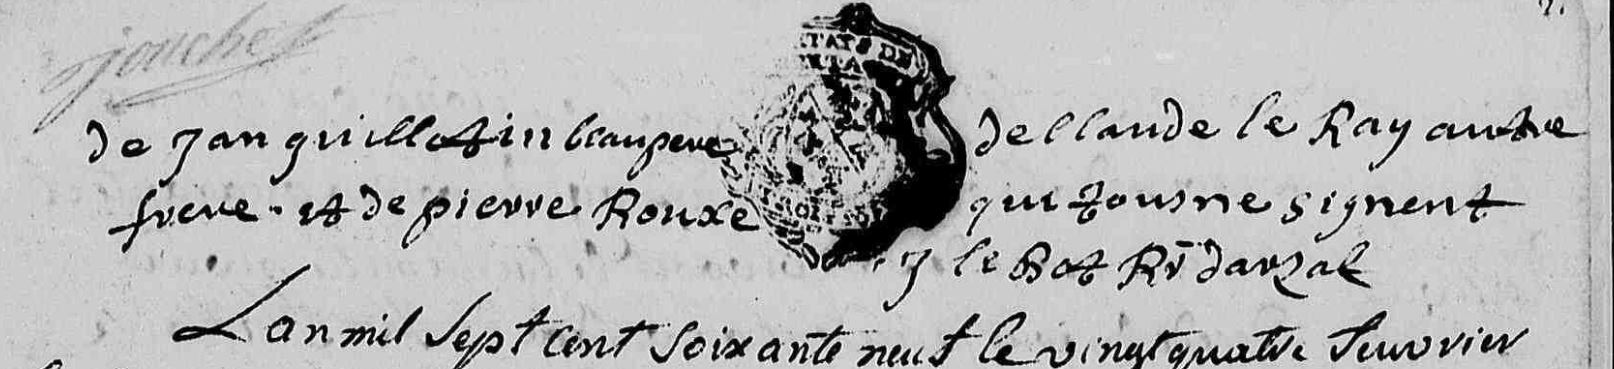 2.
jouchet
ETATS DE
de Jan guillotin beaupere de Claude le Ray autre
frere. et de pierre Rouxe qui tous ne signent
j le Bot Rr darzal
Lan mil sept cent soixante neuf le vingt quatre feuvrier